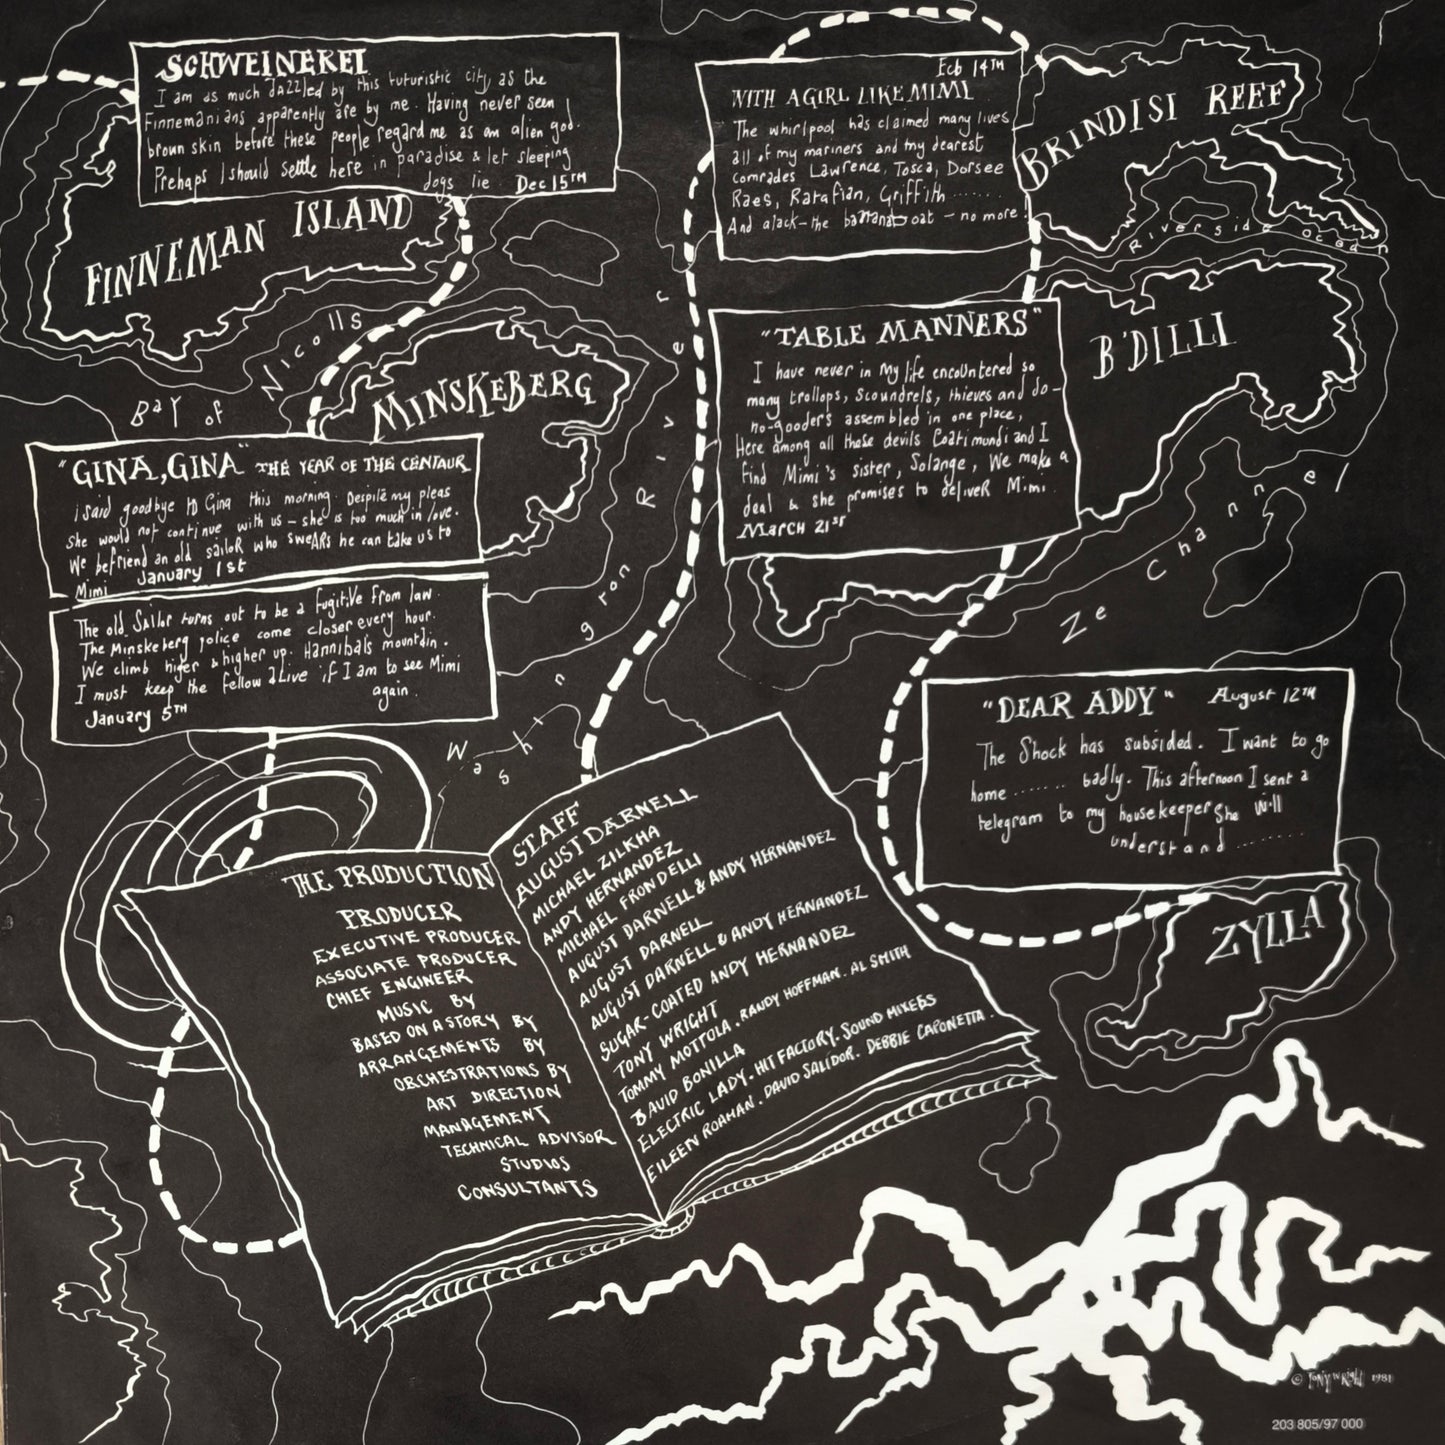 SCHWEINEREI
I am as much dazzled by this futuristic city as the
Finnemanians apparently are by me. Having never seen
brown skin before these people regard me as an alien god.
Prehaps I should settle here in paradise & let sleeping
dogs lie. Dec 15TH
FINNEMAN ISLAND
Bay of Nicolls
MINSKEBERG
"GINA, GINA" THE YEAR OF THE CENTAUR
I said goodbye to Gina this morning. Despite my pleas
she would not continue with us - she is too much in love.
We befriend an old sailor who swears he can take us to
Mimi January 1st
The old Sailor turns out to be a fugitive from law.
The Minskeberg police come closer every hour.
We climb higer & higher up. Hannibals mountain.
I must keep the fellow alive if I am to see Mimi
again.
January 5TH
Washngron River
Feb 14TH
WITH A GIRL LIKE MIMI
The whirlpool has claimed many lives
all of my mariners and my dearest
comrades Lawrence, Tosca, Dorsee
Raes, Ratafian, Griffith .......
And alack - the bananaboat - no more!
BRINDISI REEF
Riverside Ocean
"TABLE MANNERS"
I have never in my life encountered so
many trollops, scoundrels, thieves and do-
no-gooders assembled in one place,
Here among all these devils Coati mundi and I
find Mimi's sister, Solange, We make a
deal & she promises to deliver Mimi.
March 21ST
B'DILLI
Ze Channel
"DEAR ADDY" August 12TH
The Shock has subsided. I want to go
home ....... badly. This afternoon I sent a
telegram to my housekeeper She will
understand .......
ZYLLA
THE PRODUCTION
PRODUCER
EXECUTIVE PRODUCER
ASSOCIATE PRODUCER
CHIEF ENGINEER
MUSIC BY
BASED ON A STORY BY
ARRANGEMENTS BY
ORCHESTRATIONS BY
ART DIRECTION
MANAGEMENT
TECHNICAL ADVISOR
STUDIOS
CONSULTANTS
STAFF
AUGUST DARNELL
MICHAEL ZILKHA
ANDY HERNANDEZ
MICHAEL FRONDELLI
AUGUST DARNELL & ANDY HERNANDEZ
AUGUST DARNELL
AUGUST DARNELL & ANDY HERNANDEZ
SUGAR-COATED ANDY HERNANDEZ
TONY WRIGHT
TOMMY MOTTOLA. RANDY HOFFMAN. AL SMITH
DAVID BONILLA
ELECTRIC LADY. HIT FACTORY. SOUND MIXERS
EILEEN ROAMAN. DAVID SALIDOR. DEBBIE CAPONETTA.
© Tony Wright 1981
203 805/97 000